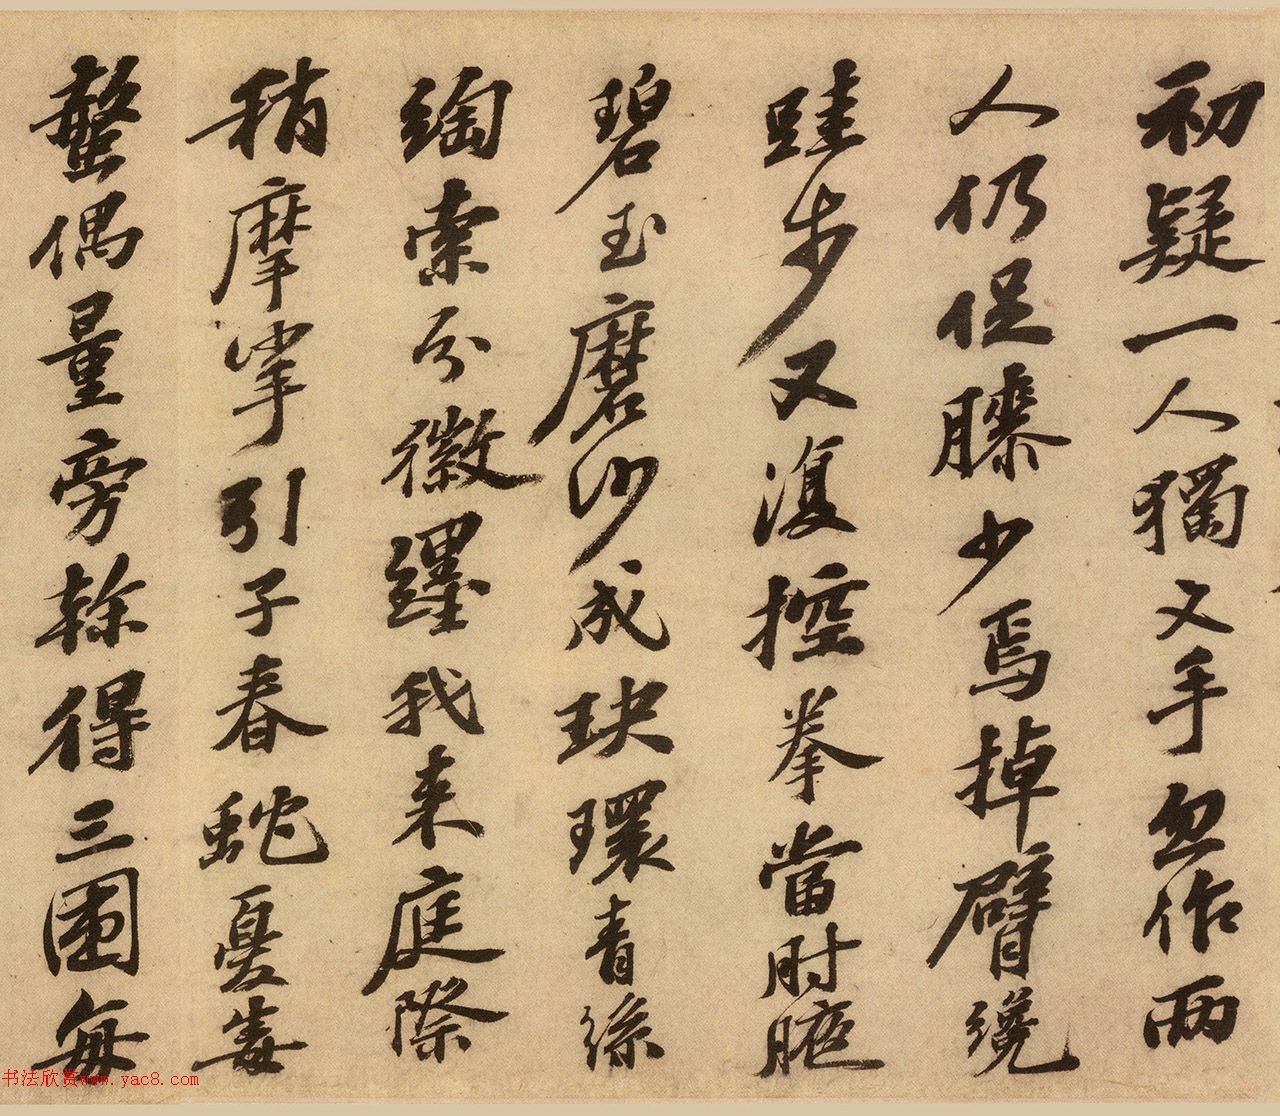 初疑一人獨叉手忽作兩
人仍促膝少焉掉臂繞
跬步又復控拳當肘腋
碧玉磨沙成玦環青絲
綯索分徽纆我来庭際
稍摩挲引子春虵憂毒
螫偶量旁榦得三圍每
书法欣赏www.yac8.com